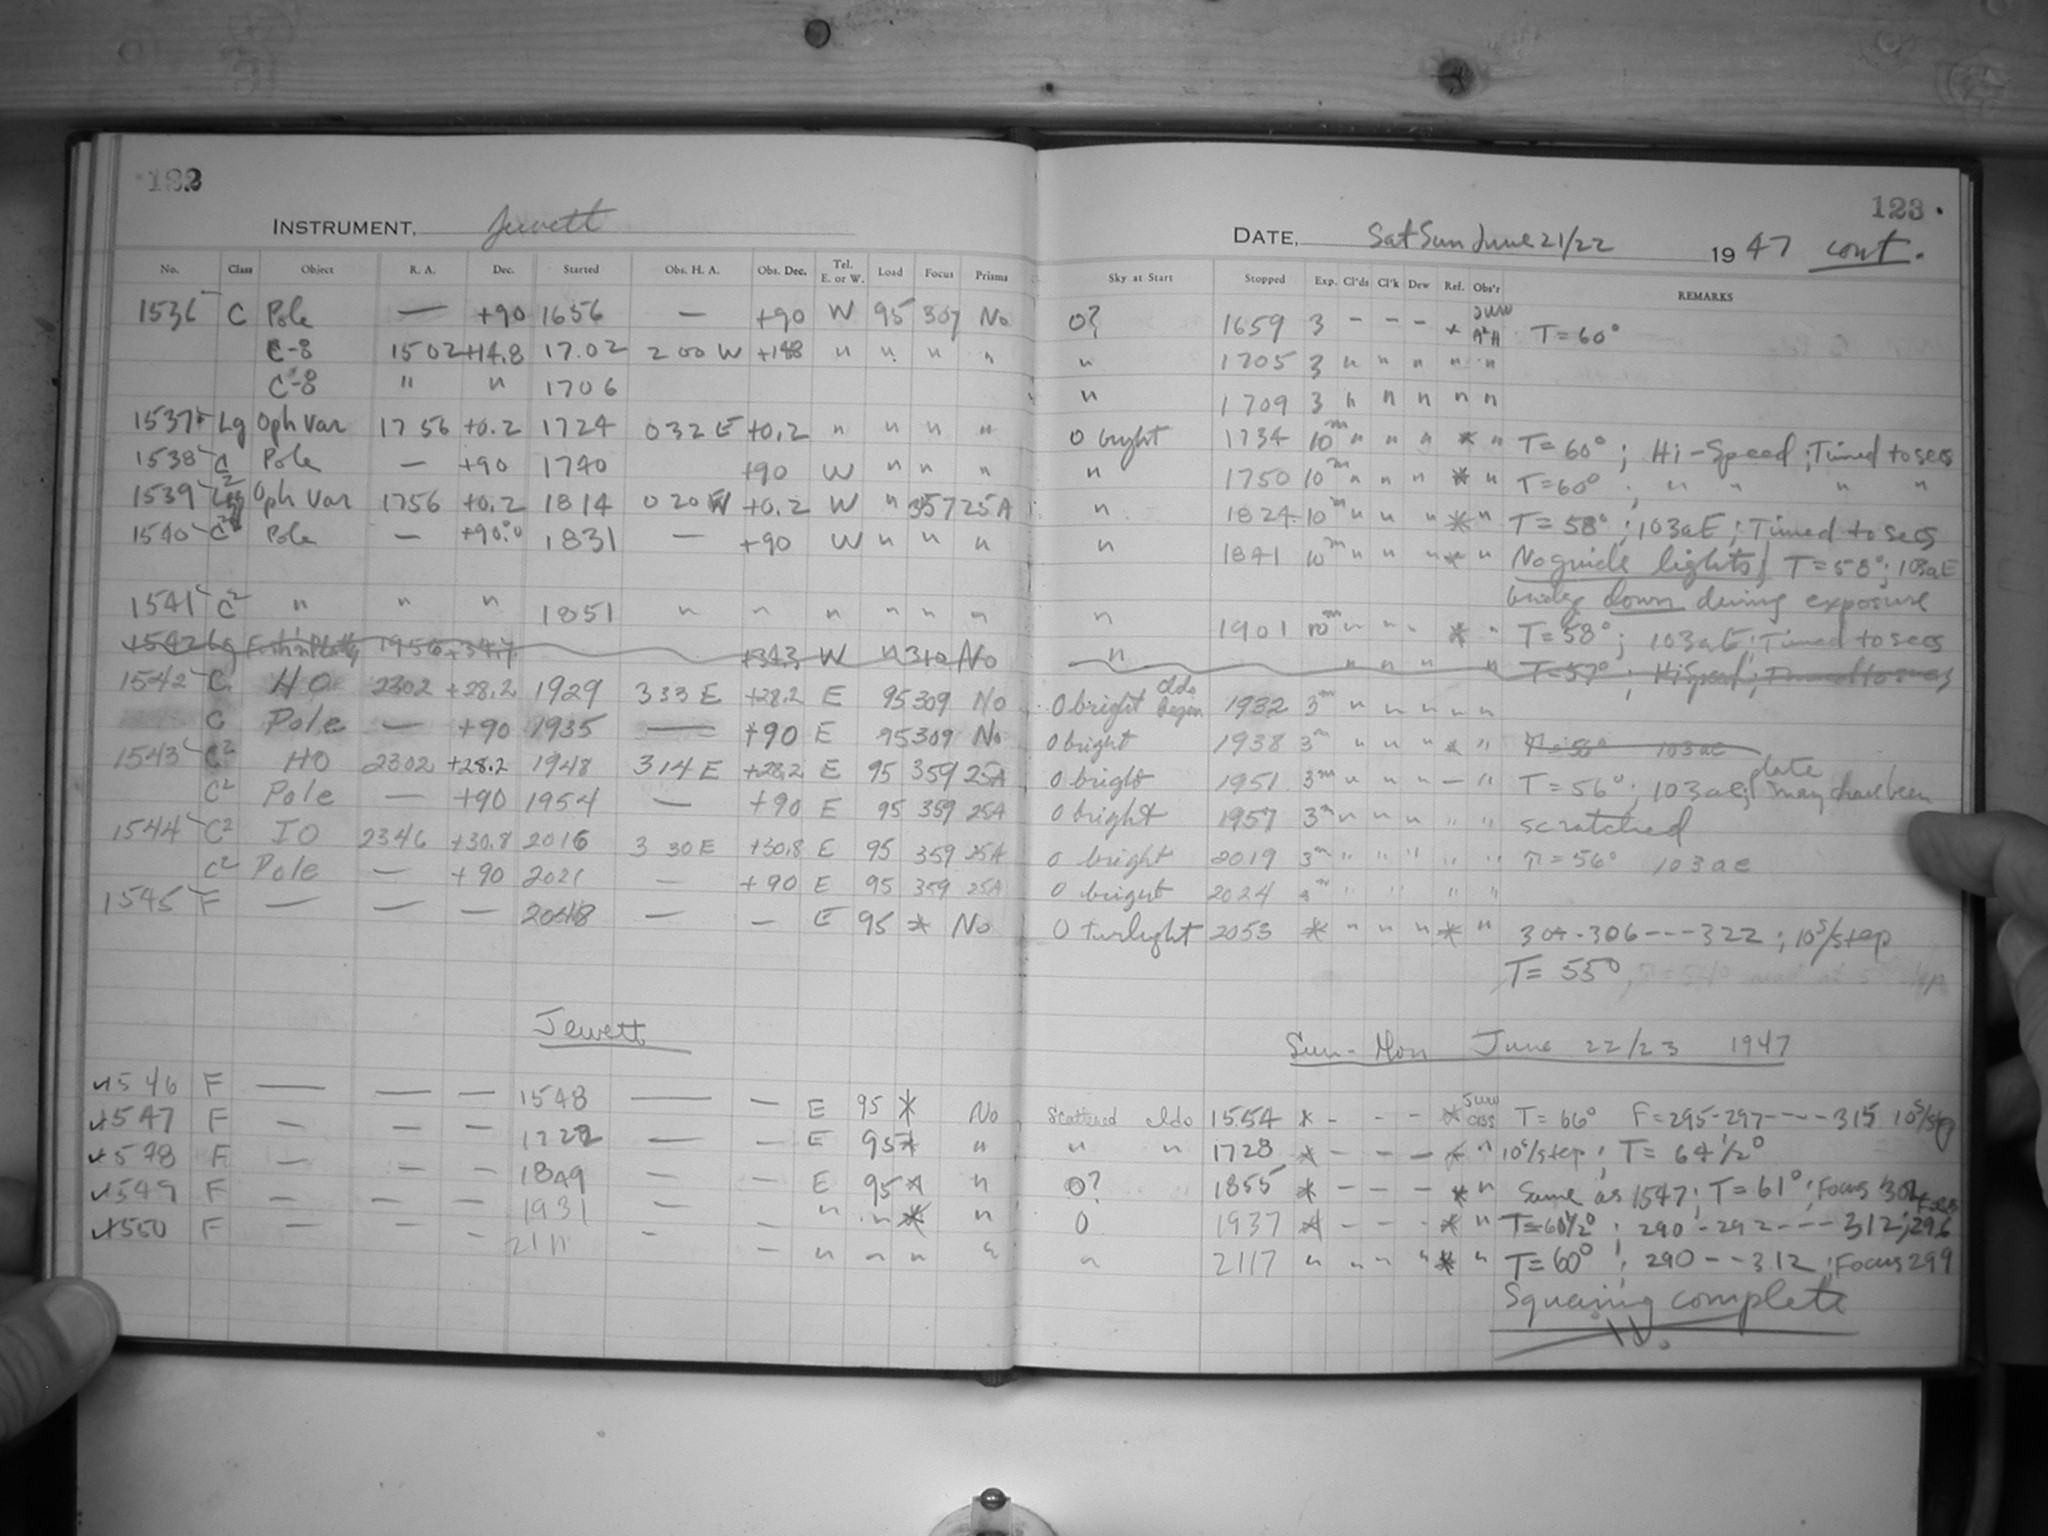 122
INSTRUMENT. Jewett
No. Class Object R. A. Dec. Started Obs. H. A. Obs. Dec. Tel. E. or W. Load Focus Prisms
1536 C Pole — +90 1656 — +90 W 95 307 No
C-8 1502 +14.8 17.02 2 00 W +14.8 " " " "
C-8 " " 1706
1537 Lg Oph Var 1756 +0.2 1724 0 32 E +0.2 " " " "
1538 C Pole — +90 1740 +90 W " " "
1539 Oph Var 1756 +0.2 1814 0 20 W +0.2 W " 357 25A
1540 C2 Pole — +90.0 1831 — +90 W " " "
1541 C2 " " " 1851 " " " " " "
1542 Lg 1956 +34.7 +34.3 W " 310 No
1542 C HO 2302 +28.2 1929 3 33 E +28.2 E 95 309 No
C Pole — +90 1935 — +90 E 95 309 No
1543 C2 HO 2302 +28.2 1948 3 14 E +28.2 E 95 359 25A
C2 Pole — +90 1954 — +90 E 95 359 25A
1544 C2 IO 2346 +30.8 2016 3 30 E +30.8 E 95 359 25A
C2 Pole — +90 2021 — +90 E 95 359 25A
1545 F — — — 2048 — — E 95 * No
Jewett
1546 F — — — 1548 — — E 95 * No
1547 F — — — 1722 — — E 95 * "
1548 F — — — 1849 — — E 95 * "
1549 F — — — 1931 — — " " * "
1550 F — — 2111 — — " " " "
123.
DATE, Sat Sun June 21/22 1947 cont.
Sky at Start Stopped Exp. Cl'ds Cl'k Dew Ref. Obs'r REMARKS
0? 1659 3 - - - * T=60°
" 1705 3 " " " " "
" 1709 3 " " " " "
0 bright 1734 10m " " " * " T=60° ; Hi-Speed ; Timed to secs
" 1750 10m " " " * " T=60° ; " " " "
" 1824 10m " " " * " T=58° ; 103aE ; Timed to secs
" 1841 10m " " " * " No guide lights T=58° ; 103aE
down during exposure
" 1901 10m " " " * " T=58° ; 103aE ; Timed to secs
" " " " " T=57° ; Hi Speed ; Timed to secs
0 bright clds began 1932 3m " " " " "
0 bright 1938 3m " " " * " T=56° 103ae
0 bright 1951 3m " " " — " T=56° ; 103aE ; plate may have been
0 bright 1957 3m " " " " " scratched
0 bright 2019 3m " " " " " T=56° 103ae
0 bright 2024 3m " " " "
0 twilight 2053 * " " " * " 304-306---322 ; 10s/step
T=55°
Sun-Mon June 22/23 1947
Scattered clds 1554 * - - - * T=66° F=295-297----315 10s/step
" " 1728 * - - - * " 10s/step ; T=64 1/2°
0? 1855 * - - - * " Same as 1547 ; T=61° ; Focus
0 1937 * - - - * " T=60 1/2° ; 290-292---312 ; 296
" 2117 " " " " * " T=60° ; 290--312 ; Focus 299
Squaring complete